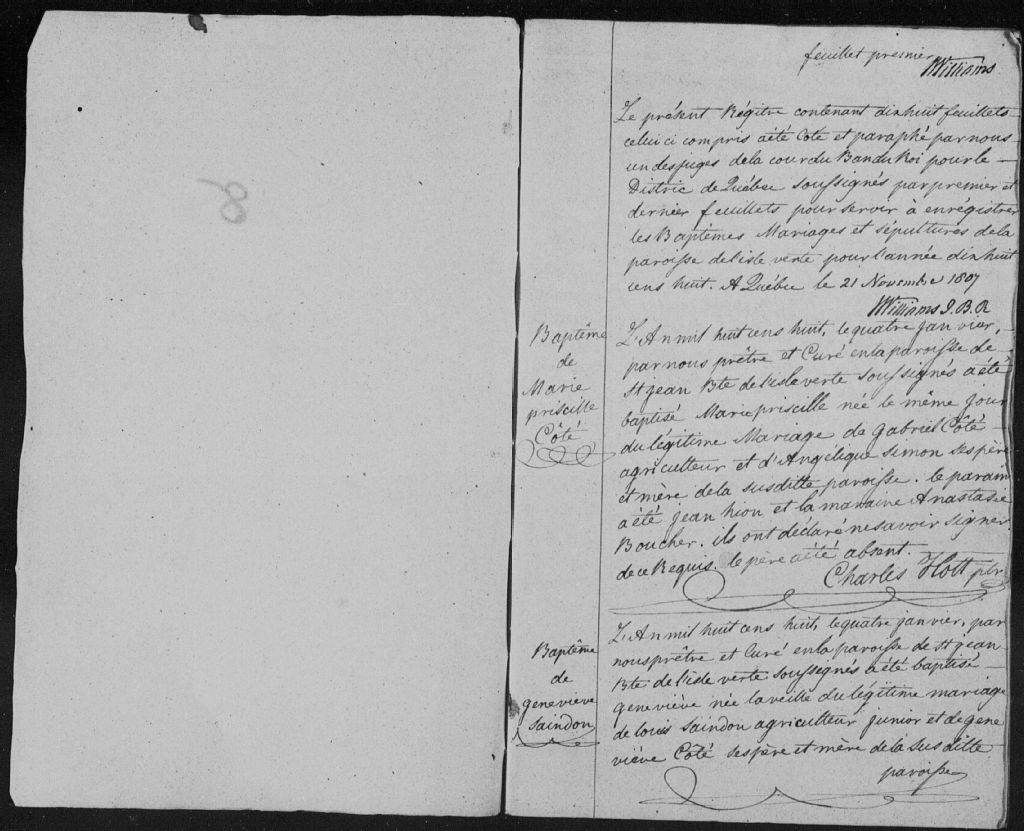 8
feuillet premier
JWilliams
Le présent Régitre contenant dix huit feuillets
celui ci compris a été coté et paraphé par nous
un des juges de la cour du Ban du Roi pour le
District de Québec soussignés par premier et
dernier feuillets pour servir à enrégistrer
les Baptêmes Mariages et sépultures de la
paroisse de l'isle verte pour l'année dix huit
cens huit. A Québec le 21 Novembre 1807
JWilliams J.B.R
Baptême
de
Marie
priscille
Côté
L'An mil huit cens huit, le quatre janvier,
par nous prêtre et Curé en la paroisse de
St jean Bte de l'isle verte soussignés a été
baptisé Marie priscille née le même jour
du légitime Mariage de Gabriel Côté
agriculteur et d'Angélique simon ses père
et mère de la susditte paroisse. le parain
a été jean hion et la maraine Anastasie
Boucher. ils ont déclaré ne savoir signer
de ce Requis. le père a été absent.
Charles Hott ptr
Baptême
de
geneviève
saindon
L'An mil huit cens huit, le quatre janvier, par
nous prêtre et Curé en la paroisse de St jean
Bte de l'isle verte soussignés a été baptisé
geneviève née la veille du légitime mariage
de louis saindon agriculteur junior et de gene
viève Côté ses père et mère de la susditte
paroisse